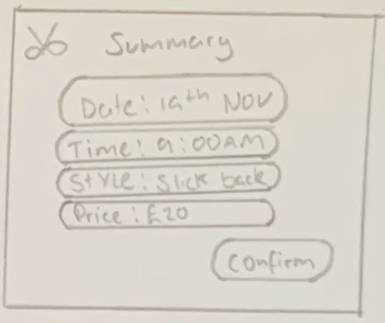 Summary
Date: 19th NOV
Time: 9:00AM
Style: Slick back
Price: £20
Confirm